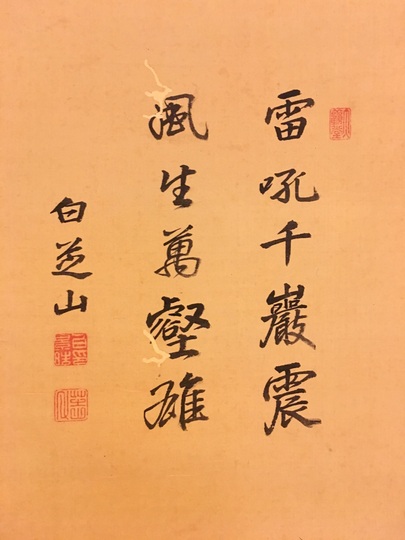 雷吼千巖震
風生萬壑雄
白芝山